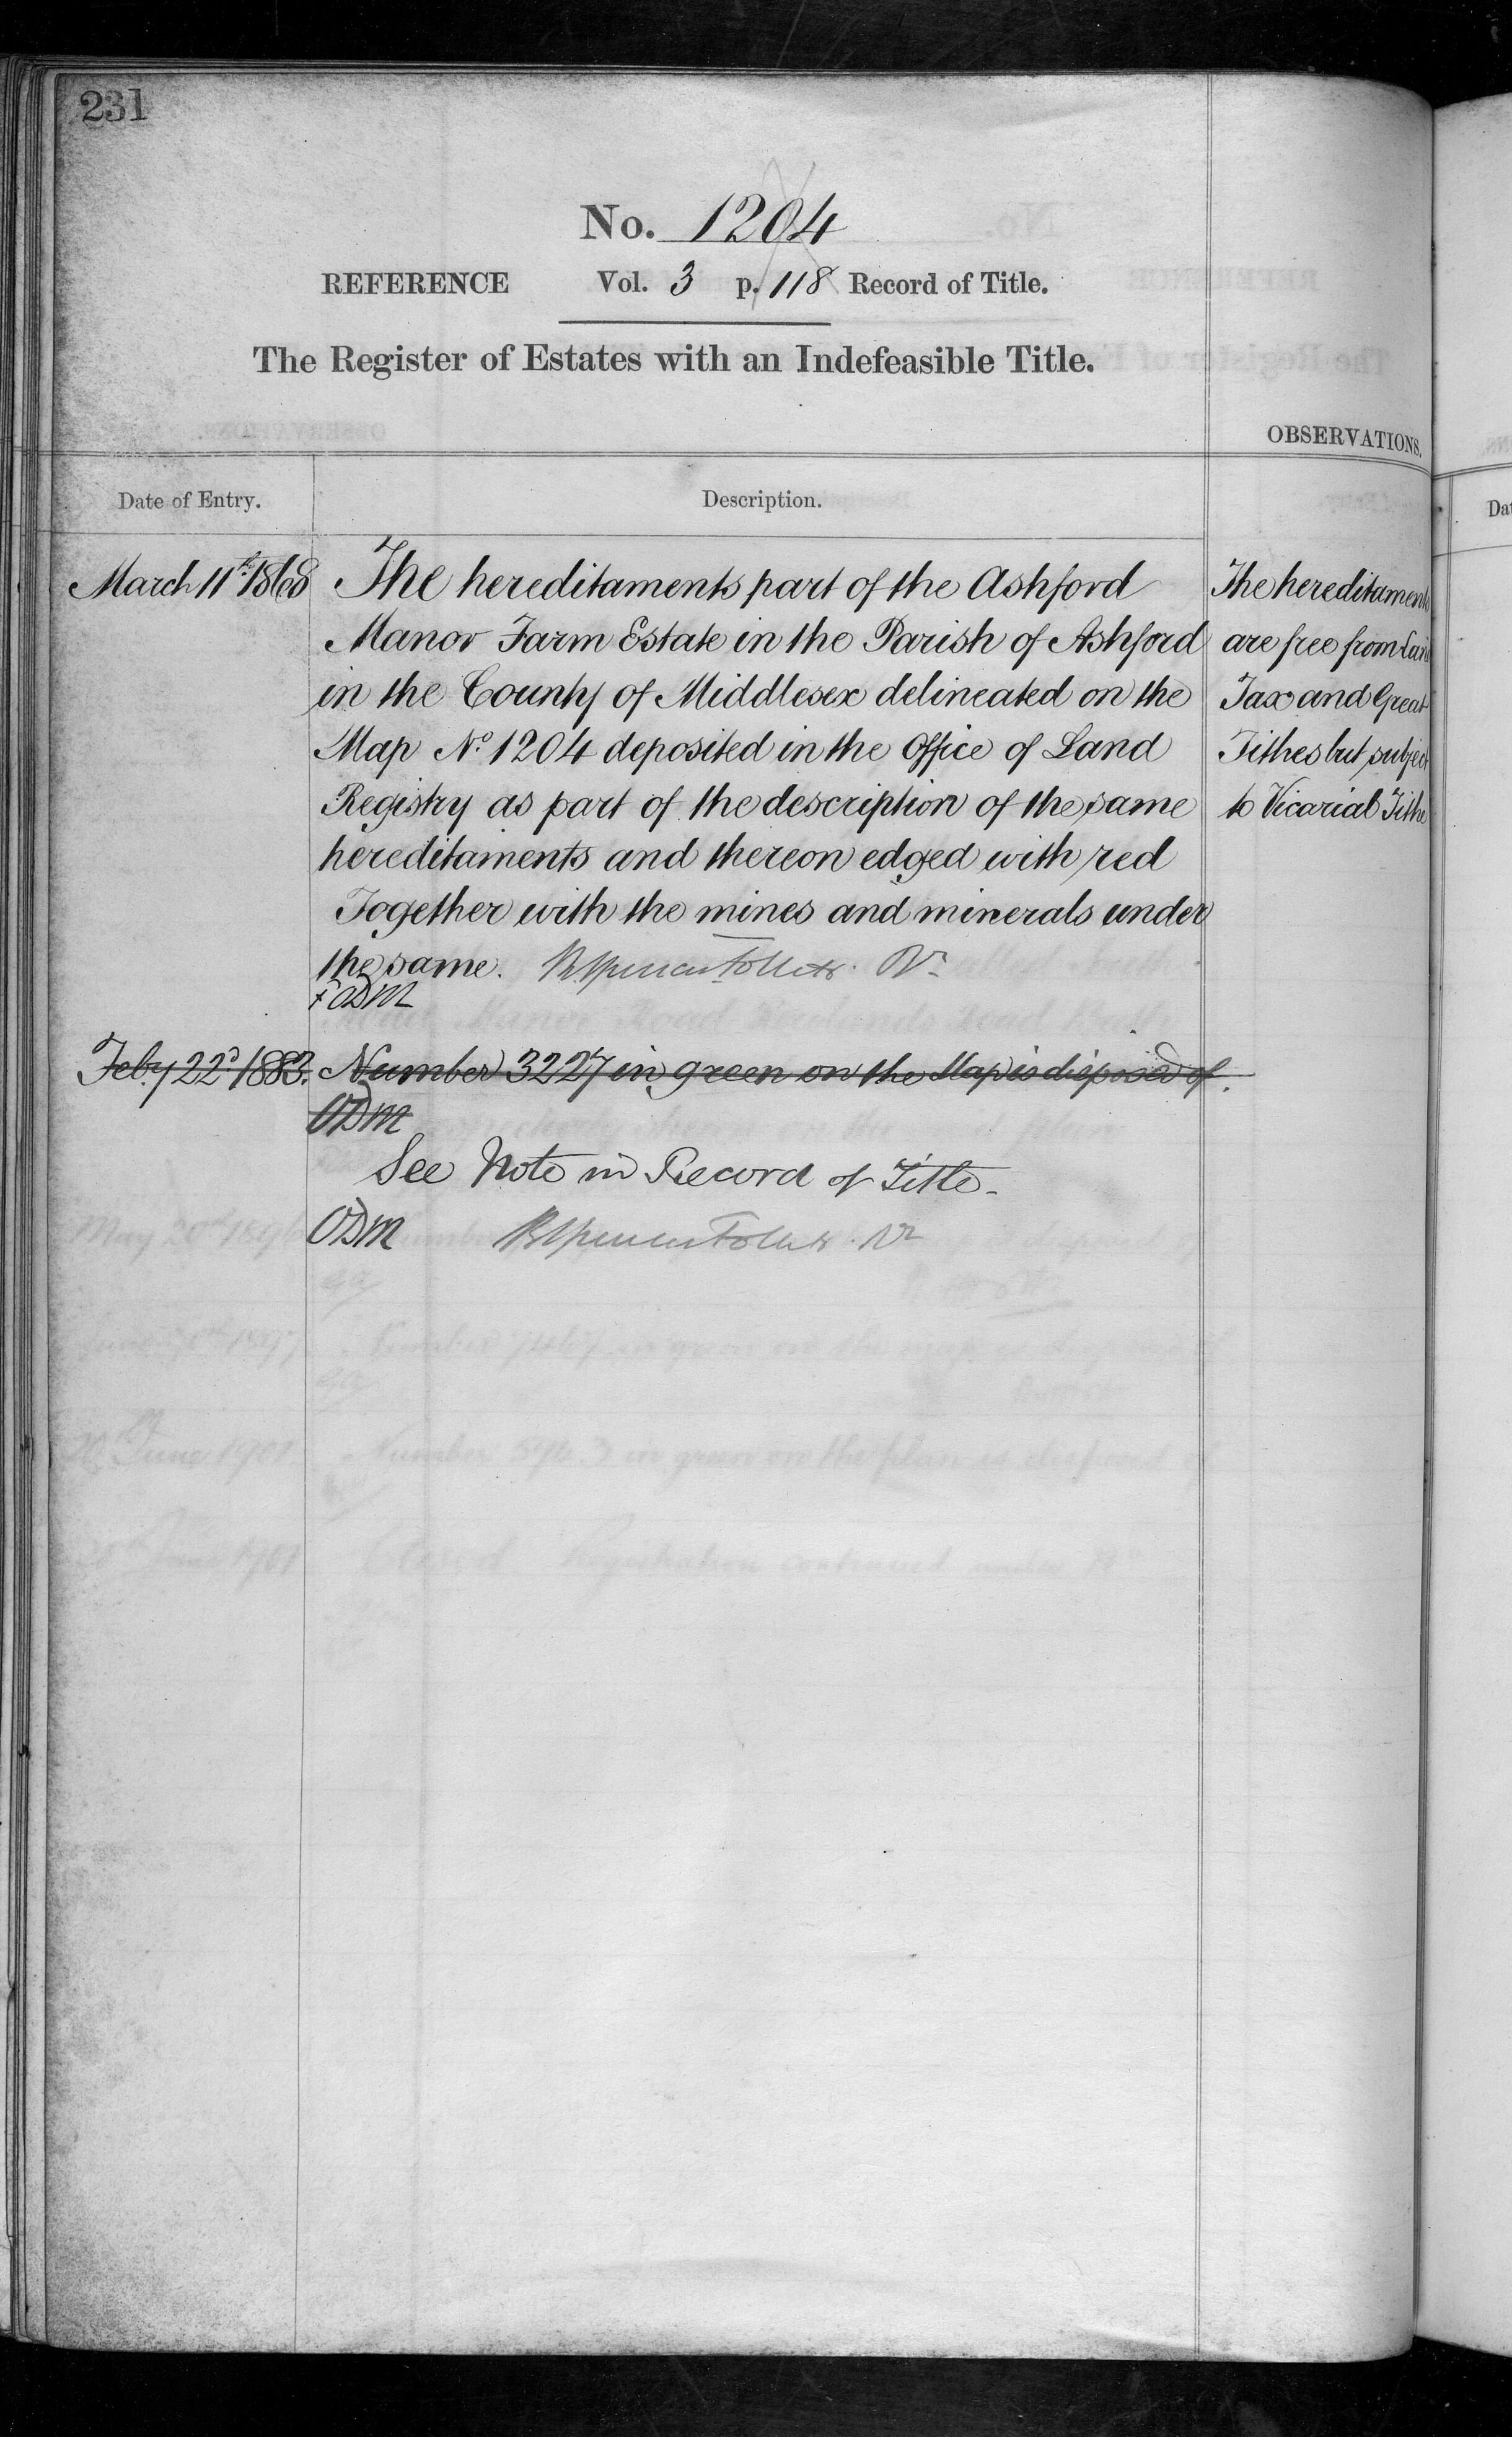 231
No. 1204
REFERENCE Vol. 3 p. 118 Record of Title.
The Register of Estates with an Indefeasible Title.
OBSERVATIONS.
Date of Entry. Description.
March 11th 1868 The hereditaments part of the Ashford
Manor Farm Estate in the Parish of Ashford
in the County of Middlesex delineated on the
Map No. 1204 deposited in the Office of Land
Registry as part of the description of the same
hereditaments and thereon edged with red
Together with the mines and minerals under
the same.
ODM
The hereditaments
are free from Land
Tax and Great
Tithes but subject
to Vicarial Tithe
Feby 22d 1883. Number 3227 in green on the Map is disposed of.
ODM
See Note in Record of Title.
ODM